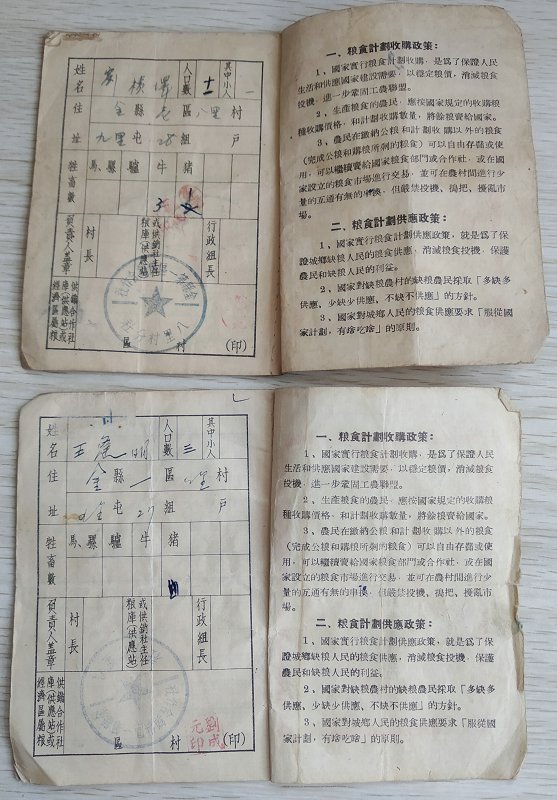 姓名
人口數
其中小人
住
金縣
區
八里
村
址
九里屯
組
戶
牲畜數
馬
騾
驢
牛
猪
負責人蓋章
村長
或供銷社主任
粮庫(供應站)
行政組長
供銷合作社
庫(供應站)或
經濟區屬粮
區
村
(印)
一、粮食計劃收購政策:
1、國家實行粮食計劃收購,是爲了保證人民
生活和供應國家建設需要,以穩定粮價,消滅粮食
投機,進一步鞏固工農聯盟。
2、生產粮食的農民,應按國家規定的收購粮
種收購價格、和計劃收購數量,將餘粮賣給國家。
3、農民在繳納公粮和計劃收購以外的粮食
(完成公粮和購粮所剩的粮食)可以自由存儲或使
用,可以繼續賣給國家粮食部門或合作社,或在國
家設立的粮食市場進行交易,並可在農村間進行少
量的互通有無的
但嚴禁投機、搗把、擾亂市
場。
二、粮食計劃供應政策:
1、國家實行粮食計劃供應政策,就是爲了保
證城鄉缺粮人民的粮食供應,消滅粮食投機,保護
農民和缺粮人民的利益。
2、國家對缺粮農村的缺粮農民採取「多缺多
供應、少缺少供應、不缺不供應」的方針。
3、國家對城鄉人民的粮食供應要求「服從國
家計劃,有啥吃啥」的原則。
姓名
王
明
人口數
三
其中小人
住
金縣
一區
村
址
屯
組
戶
牲畜數
馬
騾
驢
牛
猪
負責人蓋章
村長
或供銷社主任
粮庫(供應站)
行政組長
供銷合作社
庫(供應站)或
經濟區屬粮
區
村
(印)
劉成
元印
一、粮食計劃收購政策:
1、國家實行粮食計劃收購,是爲了保證人民
生活和供應國家建設需要,以穩定粮價,消滅粮食
投機,進一步鞏固工農聯盟。
2、生產粮食的農民,應按國家規定的收購粮
種收購價格、和計劃收購數量,將餘粮賣給國家。
3、農民在繳納公粮和計劃收購以外的粮食
(完成公粮和購粮所剩的粮食)可以自由存儲或使
用,可以繼續賣給國家粮食部門或合作社,或在國
家設立的粮食市場進行交易,並可在農村間進行少
量的互通有無的
但嚴禁投機、搗把、擾亂市
場。
二、粮食計劃供應政策:
1、國家實行粮食計劃供應政策,就是爲了保
證城鄉缺粮人民的粮食供應,消滅粮食投機,保護
農民和缺粮人民的利益。
2、國家對缺粮農村的缺粮農民採取「多缺多
供應、少缺少供應、不缺不供應」的方針。
3、國家對城鄉人民的粮食供應要求「服從國
家計劃,有啥吃啥」的原則。